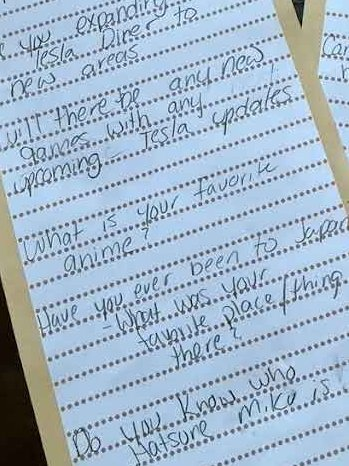 you expanding
Tesla Diner to
new areas
will there be any new
games with any
upcoming Tesla updates
What is your favorite
anime?
Have you ever been to Japan
- What was your
favorite place/thing
there?
Do you know who
Hatsune Miku is